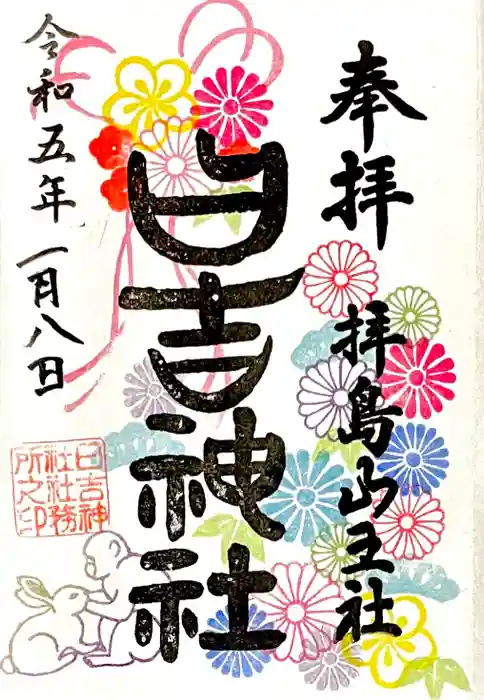 奉拝
拝島山王社
日吉神社
令和五年一月八日
日吉神
社社務
所之印